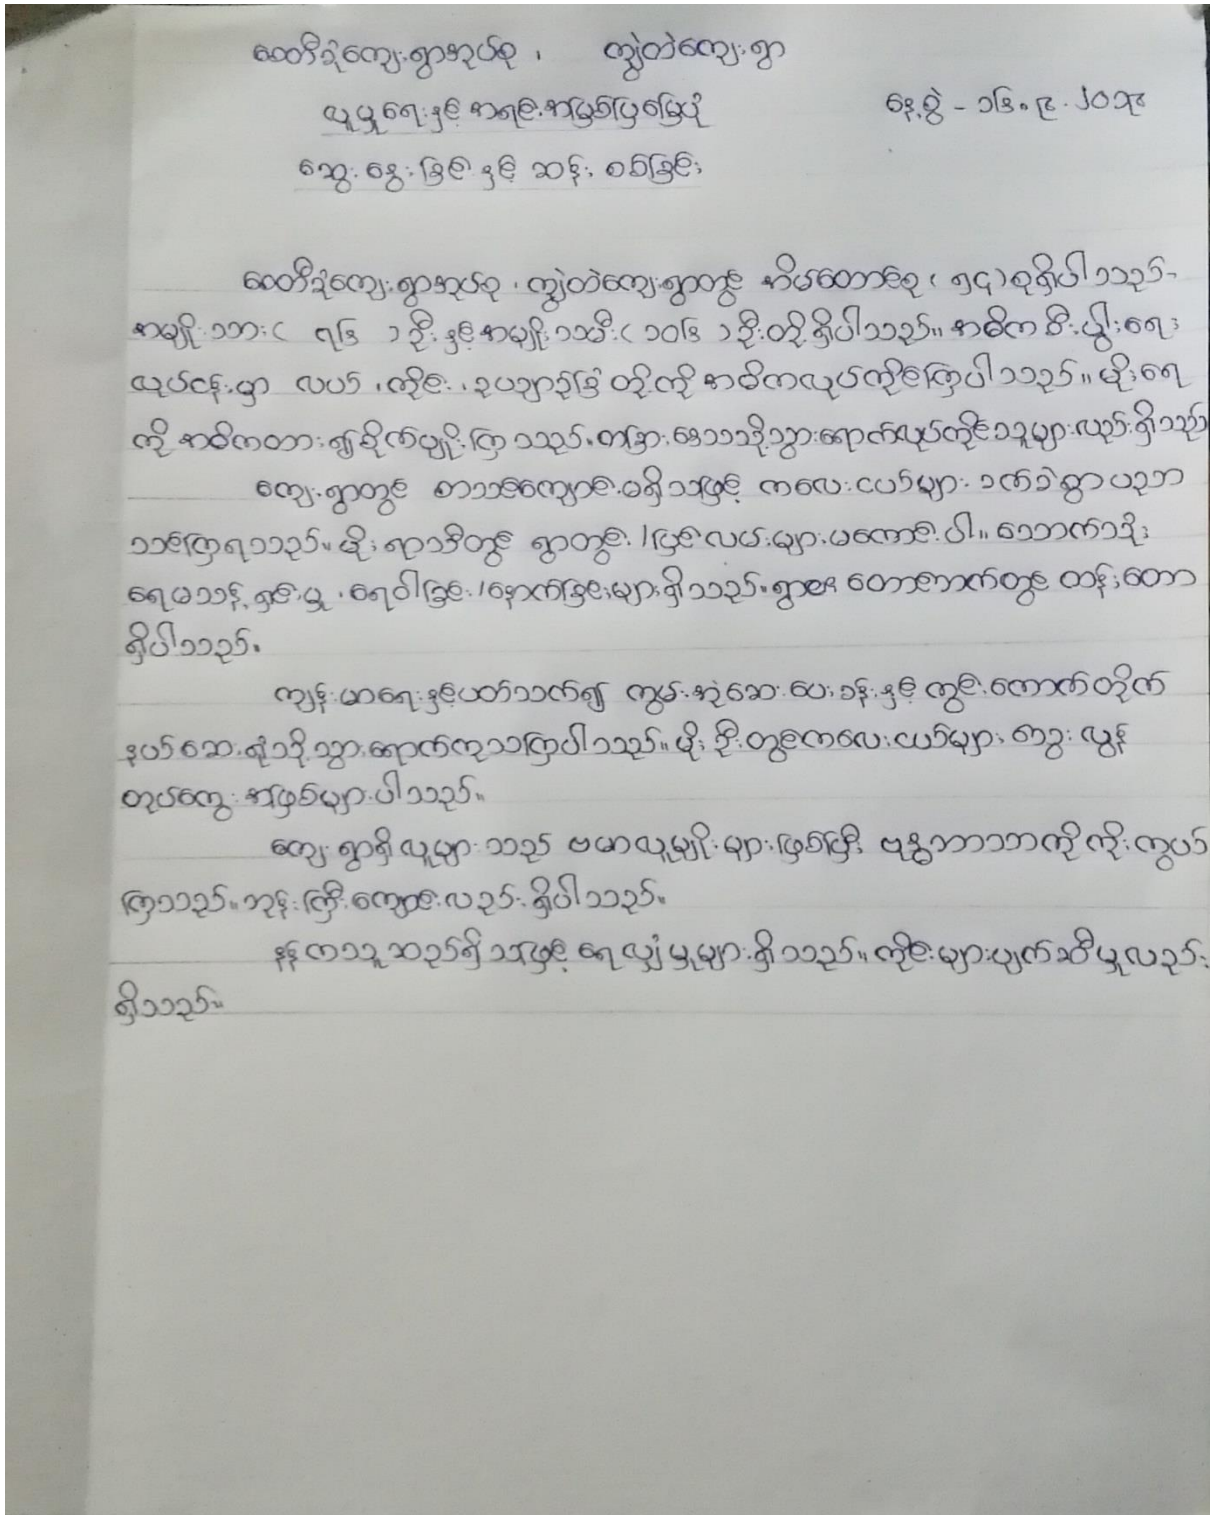 စေတီခုံကျေးရွာအုပ်စု ၊ ကျွဲတဲကျေးရွာ
လူမှုရေးနှင့် အရင်းအမြစ်ပြမြေပုံ နေ့စွဲ - ၁၆.၉.၂၀၁၄
ဆွေးနွေးခြင်းနှင့် ဆန်းစစ်ခြင်း
စေတီခုံကျေးရွာအုပ်စု ၊ ကျွဲတဲကျေးရွာတွင် အိမ်ထောင်စု ( ၅၄ ) စုရှိပါသည်-
အမျိုးသား ( ၇၆ ) ဦးနှင့် အမျိုးသမီး ( ၁၀၆ ) ဦးတို့ရှိပါသည်။ အဓိကစီးပွါးရေး
လုပ်ငန်းမှာ လယ် ၊ ကိုင်း ၊ ဥယျာဉ်ခြံတို့ကို အဓိကလုပ်ကိုင်ကြပါသည်။ မိုးရေ
ကို အဓိကထား၍စိုက်ပျိုးကြသည်. တခြားဒေသသို့သွားရောက်လုပ်ကိုင်သူများလည်းရှိသည်
ကျေးရွာတွင် စာသင်ကျောင်းမရှိသဖြင့် ကလေးငယ်များ ခက်ခဲစွာပညာ
သင်ကြရသည်။ မိုးရာသီတွင် ရွာတွင်း/ပြင်လမ်းများမကောင်းပါ။ သောက်သုံး
ရေမသန့်ရှင်းမှု ၊ ရေဝါခြင်း/နောက်ခြင်းများရှိသည်. ရွာ၏ တောဘက်တွင် ထန်းတော
ရှိပါသည်.
ကျန်းမာရေးနှင့်ပတ်သက်၍ ကွမ်းအုံဆေးပေးခန်းနှင့် ကွင်းကောက်တိုက်
နယ်ဆေးရုံသို့သွားရောက်ကုသကြပါသည်။ မိုးဦးတွင်ကလေးငယ်များ တုဌး လွန်
တုပ်ကွေး အဖြစ်များပါသည်။
ကျေးရွာရှိလူများသည် ဗမာလူမျိုးများဖြစ်ပြီး ဗုဒ္ဓဘာသာကိုကိုးကွယ်
ကြသည်။ ဘုန်းကြီးကျောင်းလည်းရှိပါသည်.
နန်ကသူဆည်ရှိသဖြင့် ရေလျှံမှုများရှိသည်။ ကိုင်းများပျက်ဆီးမှုလည်း
ရှိသည်။